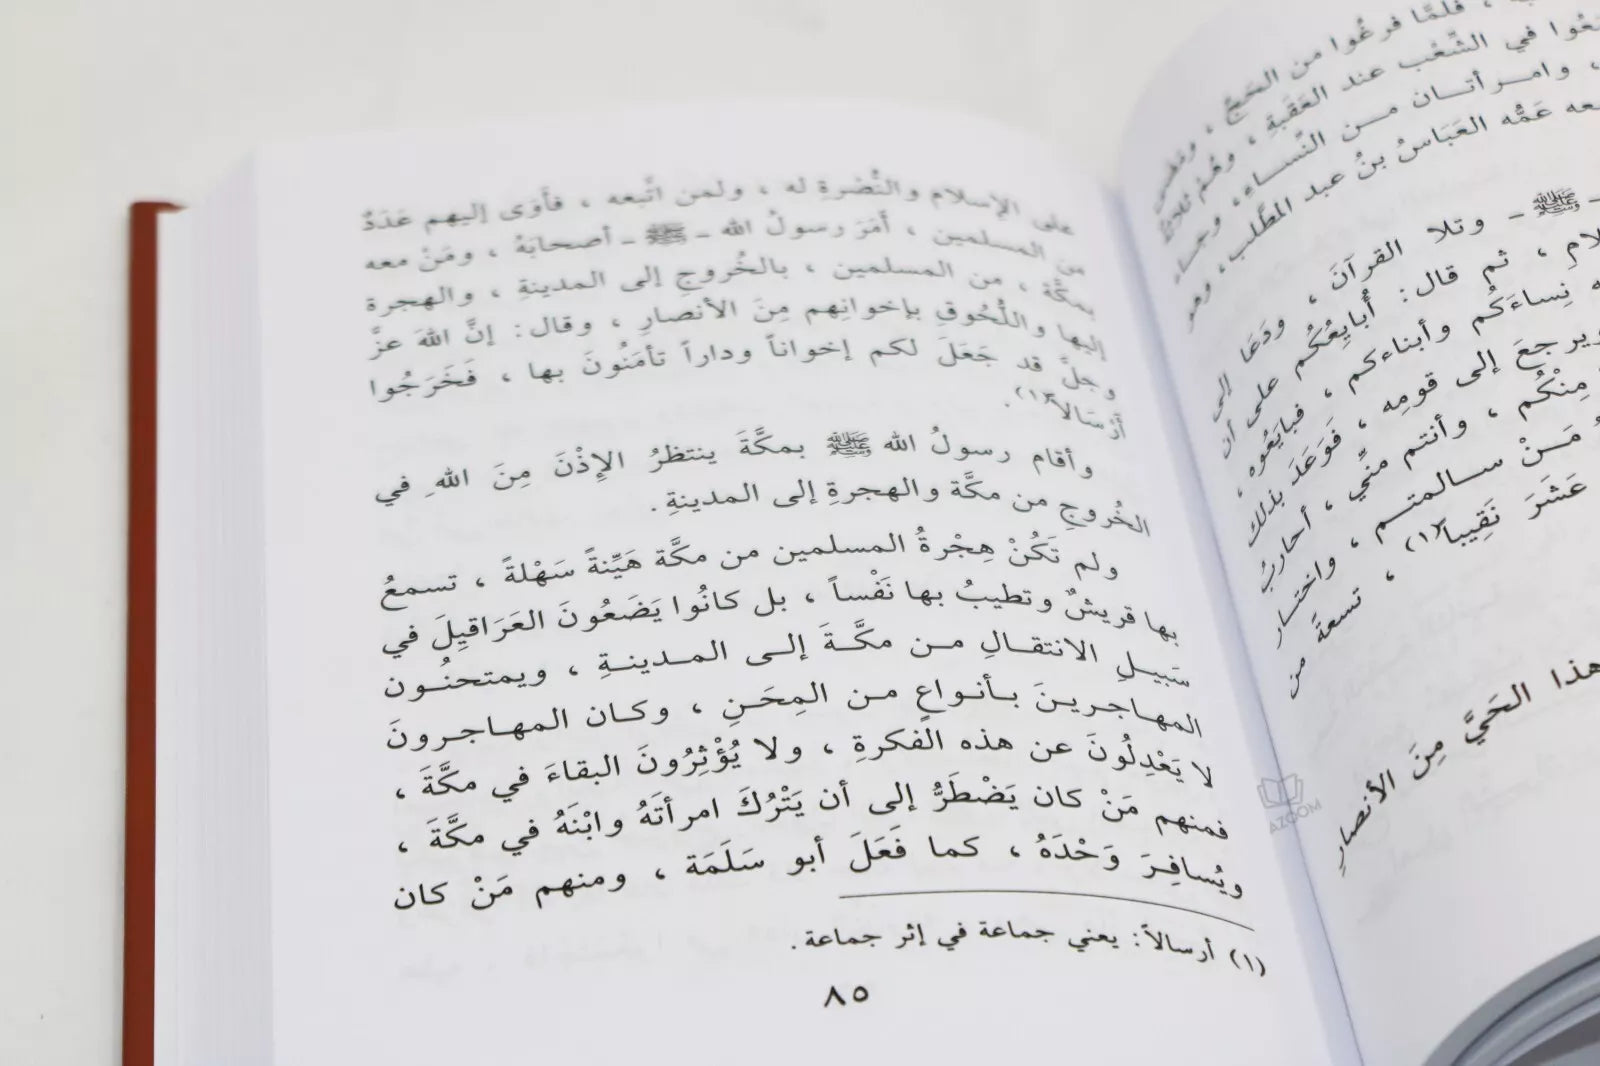 فلمَّا فرغُوا من الحَجِّ ، ومضى
في الشِّعْب عند العَقَبةِ ، وهُمْ ثلاثةٌ
، وامرأتان من النِّساء، وجاء
عَمُّه العَبَاسُ بنُ عبد المطَّلب، وهو
ـ ﷺ ـ وتلا القرآنَ ، ودَعَا إلى
ثم قال: أُبايِعُكُم على أن
نِساءَكُم وأبناءكم ، فبايَعُوه ،
ويرجعَ إلى قومِه ، فَوَعَدَ بذلك
مِنْكُم ، وأنتم منِّي ، أحاربُ
مَنْ سالمتم ، واختار
عَشَرَ نَقِيبا(١) ، تسعةً من
هذا الحَيَّ مِنَ الأنصارِ
على الإسلام والنُّصْرةِ له ، ولمن اتَّبعه ، فأوَى إليهم عَدَدٌ
من المسلمين ، أمَرَ رسولُ الله ـ ﷺ ـ أصحابَهُ ، ومَنْ معه
بمكَّة ، من المسلمين ، بالخُروجِ إلى المدينةِ ، والهجرة
إليها واللُّحُوقِ بإخوانِهم مِنَ الأنصارِ ، وقال: إنَّ اللهَ عزَّ
وجلَّ قد جَعَلَ لكم إخواناً وداراً تأمَنُونَ بها ، فَخَرَجُوا
أرْسَالاً(١).
وأقام رسولُ الله ﷺ بمكَّةَ ينتظرُ الإذْنَ مِنَ اللهِ في
الخُروجِ من مكَّة والهجرةِ إلى المدينةِ.
ولم تَكُنْ هِجْرةُ المسلمين من مكَّة هَيِّنةً سَهْلةً ، تسمعُ
بها قريشٌ وتطيبُ بها نَفْساً ، بل كانُوا يَضَعُونَ العَرَاقِيلَ في
سَبيلِ الانتقالِ من مكَّةَ إلى المدينةِ ، ويمتحنُون
المهاجرينَ بأنواعٍ من المِحَنِ ، وكان المهاجرونَ
لا يَعْدِلُونَ عن هذه الفكرةِ ، ولا يُؤْثِرُونَ البقاءَ في مكَّةَ ،
فمنهم مَنْ كان يَضْطَرُّ إلى أن يَتْرُكَ امرأتَهُ وابْنَهُ في مكَّةَ ،
ويُسافِرَ وَحْدَهُ ، كما فَعَلَ أبو سَلَمَة ، ومنهم مَنْ كان
(١) أرسالاً: يعني جماعة في إثر جماعة.
٨٥
AZOOM